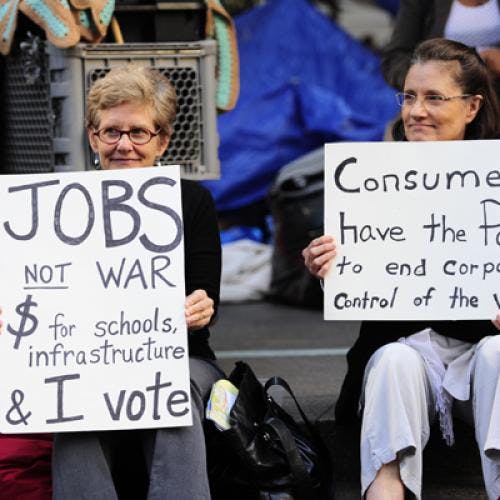 JOBS
NOT WAR
$ for schools,
infrastructure
& I vote
Consume
have the
to end corpo
Control of the